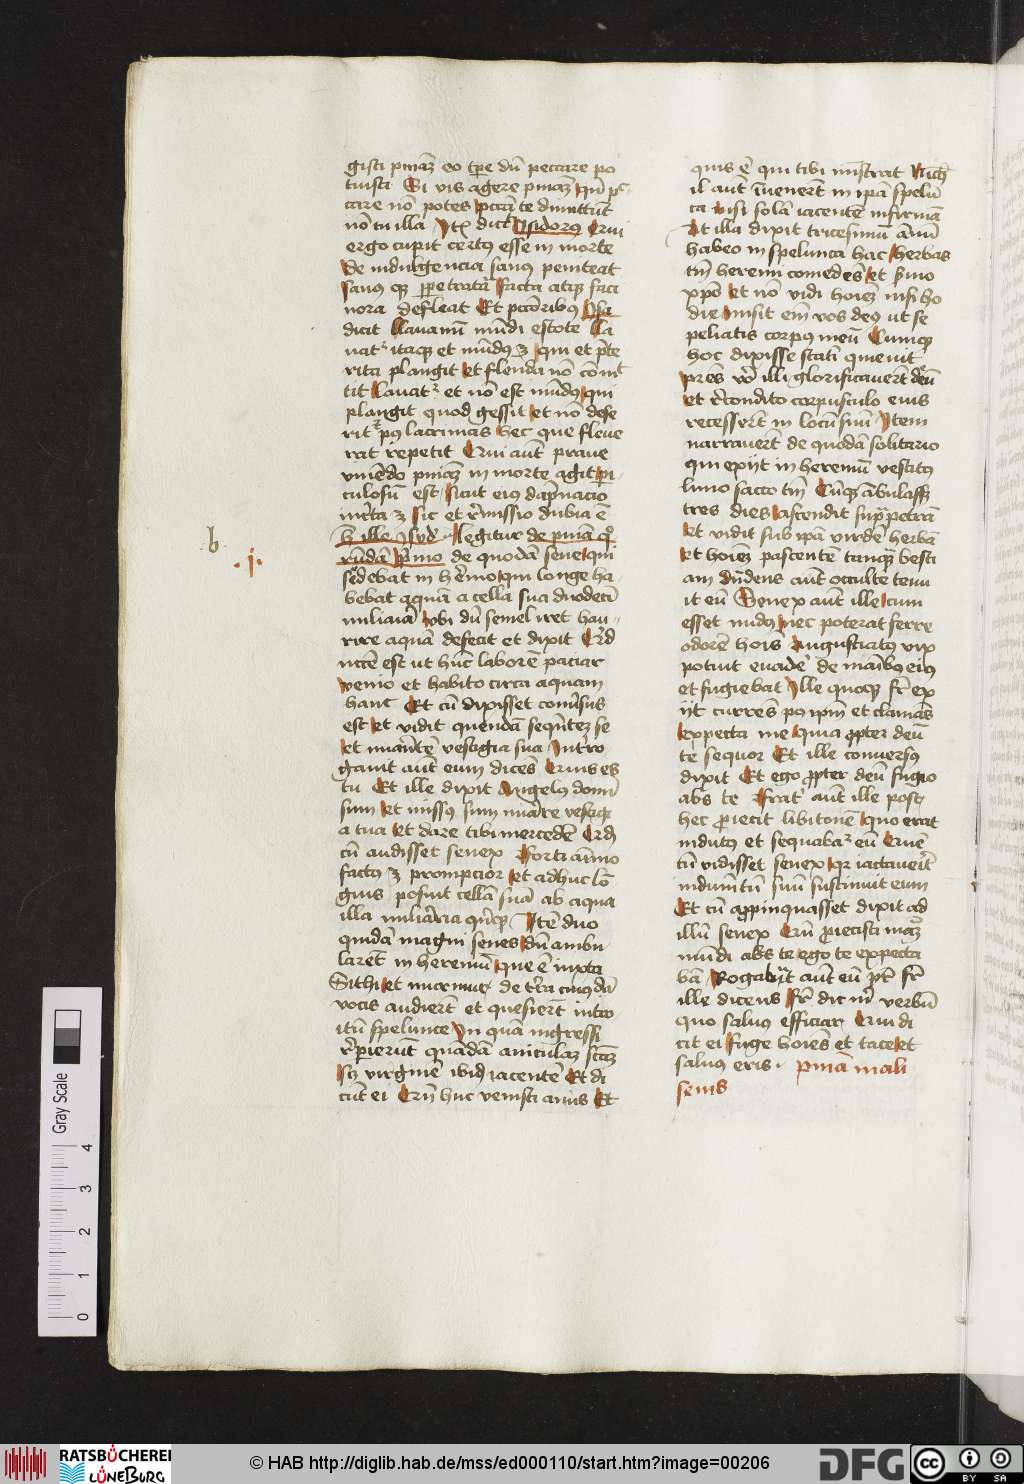 gisti pniaz eo tpe dū peccare po
tuisti Si vis agere pniaz qn̄ pc
care nō potes pctā te dimittūt
nō tu illa Itē dicit Ysidorus Qui
ergo cupit certus esse in morte
de indulgencia sanus peniteat
sanus qz ppetrata facta atqz faci
nora defleat Et pctōribus Ysa
dicit Lauamī mūdi estote La
uatr itaqz et mūdus ē qui et pte
rita plangit et flenda nō comt
tit Lauatr et nō est mūdus qui
plangit quod gessit et nō dese
rit et pus lacrimas hec que fleue
rat repetit Qui aūt praue
viuēdo pniaz in morte agit pi
culosū est sicut eius dapnacio
incta ē sic et rmissio dubia ē
Legitur de pniā
de quodā sene qui
sedebat in hremo qui longe ha
bebat aquā a cella sua duodeci
miliaria vbi dū semel iret hau
rire aquā defecit et dixit Qid
necē est ut hūc laborē paciar
venio et habito circa aquam
hanc Et cū dixisset conusus
est et vidit quendā sequētez se
et nuantē vestigia sua Intro
gauit aūt eum dicēs Quis es
tu Et ille dixit Angelus domi
sum et missus sum nuare vestigi
a tua et dare tibi mercedē Qd
cū audisset senex forti animo
factus ē prompcior et adhuc lō
gius posuit cellā suā ab aqua
illa miliaria qnqz Itē duo
quidā magni senes dū ambu
larēt in heremū que ē iuxta
Sithi et murmur de trra cuiusdā
vocis audierēt et quesierēt intro
itū spelunce In quā ingressi
rpierūt quādā aniculaz scāz
sz virginē ibiq iacentē Et di
cūt ei Qn̄ huc venisti anus Et
quis ē qui tibi mīstrat Nich
il aūt inuenerēt in ipā spelū
ca nisi solā iacentē infirmā
At illa dixit tricesimū annū
habeo in spelunca hac herbas
tm heremi comedēs et suio
xpo et nō vidi hoiez nisi ho
die misit em vos deus ut se
peliatis corpus meū Cumqz
hoc dixisse statī qmeuit
prēs vo illi glorificauerūt deū
et rcondito corpusculo eius
recesserūt in locū suū Item
narrauerūt de quodā solitario
qui exijt in heremū vestitus
lino sacco tm Cūqz ābulassz
tres dies ascendit supra petrā
et vidit sub ipā virdē herbā
et hoiez pascentē tanqz besti
am dūdens aūt occulte tenu
it eū Senex aūt ille cum
esset nudus nec poterat ferre
odorē hois Angustiatus vix
potuit euade de manibus eius
et fugiebat Ille quoqz fr ex
ijt currēs pus ipm et clamās
expecta me quia propter deū
te sequor Et ille conuersus
dixit Et ego propter deū fugio
abs te Fratr aūt ille post
hec proiecit libitonē quo erat
indutus et sequabatr eū Quē
cū vidisset senex qr iactauerit
indumtū suū sustinuit eum
Et cū appinquasset dixit ad
illū senex Qn̄ proiecisti maz
mūdi abs te ego te expecta
bā Rogabat aūt eū pr fr
ille dicens Pr dic m verbū
quo saluus efficiar Qui di
cit ei fuge hoies et tace et
saluus eris. pniā mali
senis
b
.j.
Gray Scale
4
3
2
1
0
RATSBÜCHEREI
LÜNEBURG
© HAB http://diglib.hab.de/mss/ed000110/start.htm?image=00206
DFG
cc
BY SA